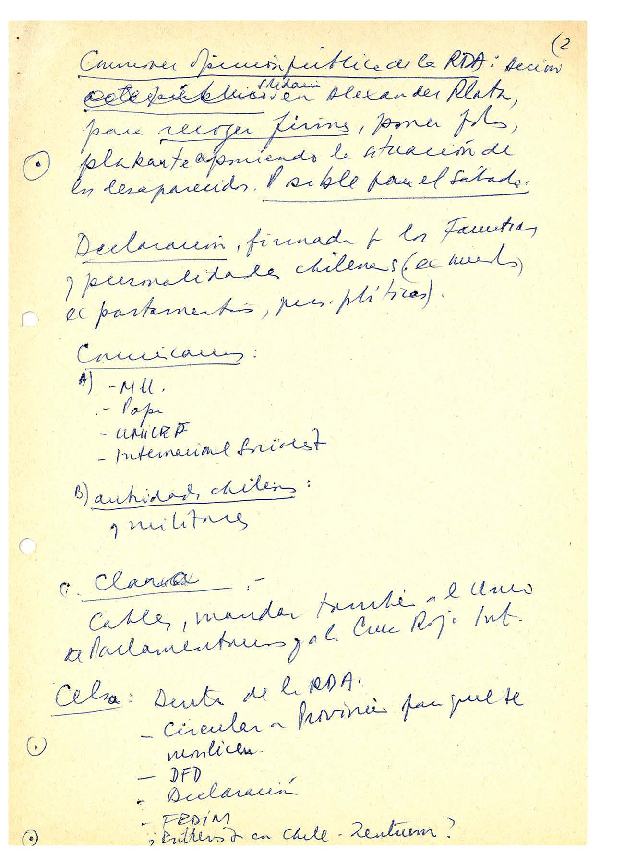 (2
Conmover opinión pública de la RDA: acción
en Alexander Platz,
para recoger firmas, poner fotos,
plakate exponiendo la situación de
los desaparecidos. Posible para el sábado.
Declaración, firmada p los Familias
y personalidades chilenas (ex
ex parlamentarios, pres. políticos).
Comunicarnos:
A) - NU.
- Papa
- UNICEF
- Internacional Socialist
B) autoridades chilenas:
y militares
C. Clara .-
Cables, mandar también a l Unión
de Parlamentarios y a la Cruz Roja Int.
Celsa: Dentro de la RDA.
- Circular a Provincias para que se
movilicen.
- DFD
- Declaración
- FEDIM
en Chile - Zentrum?